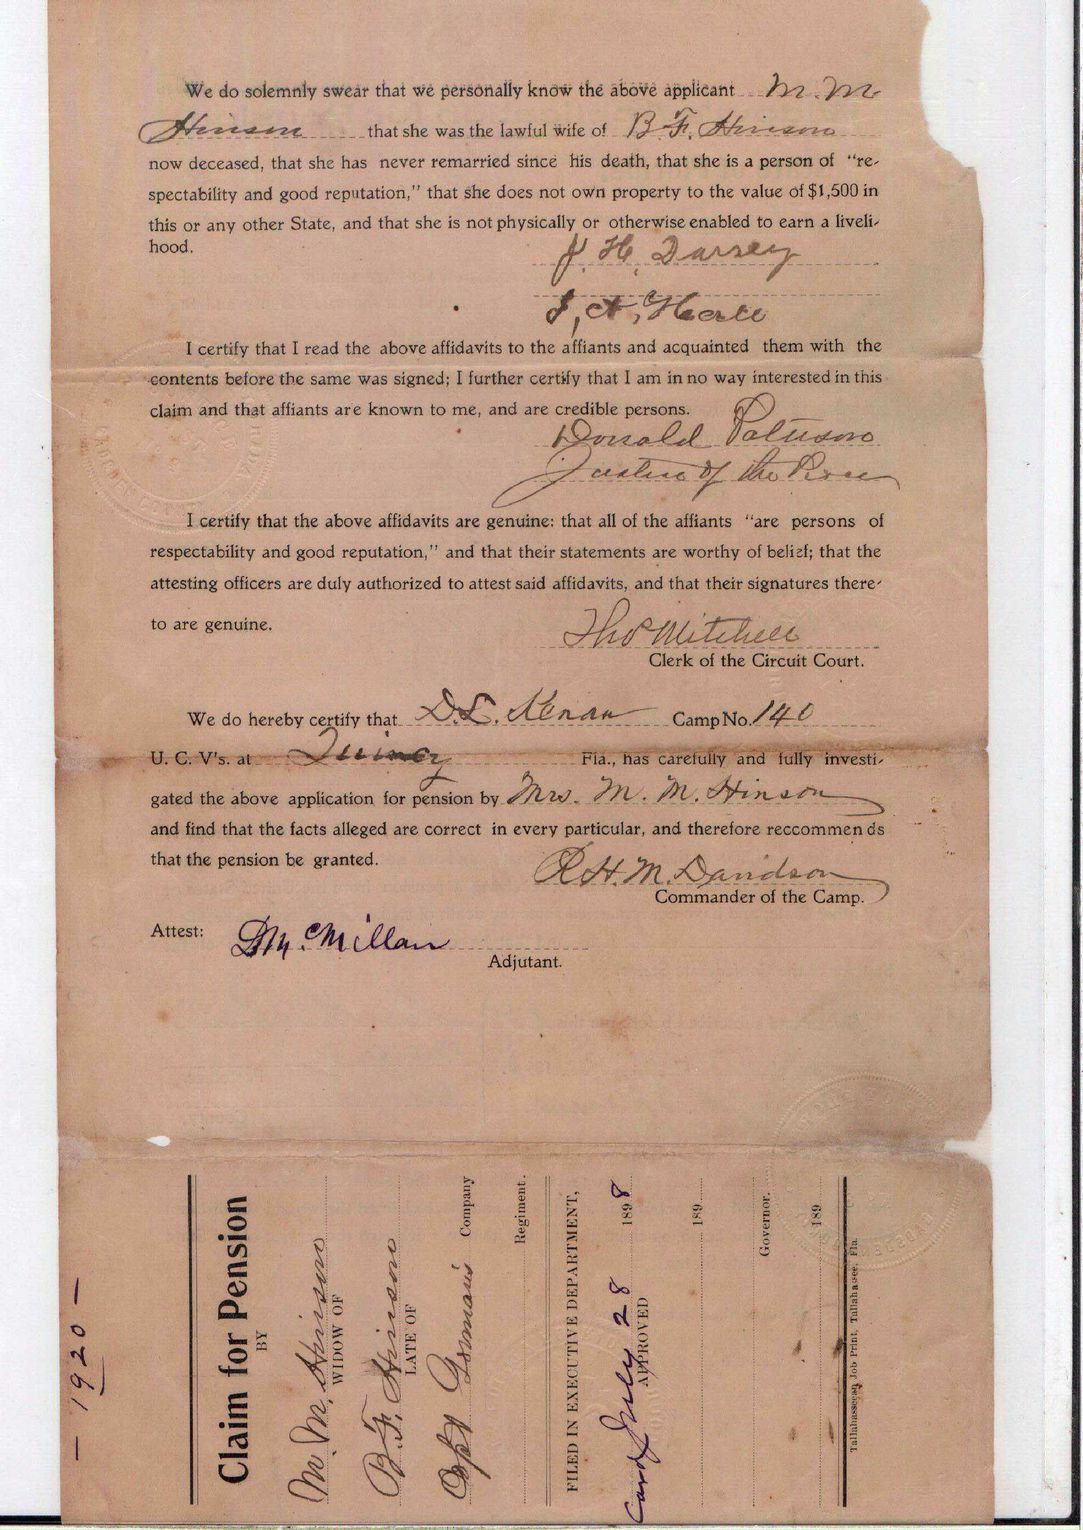 We do solemnly swear that we personally know the above applicant M. M.
Hinson that she was the lawful wife of B. F. Hinson
now deceased, that she has never remarried since his death, that she is a person of "re-
spectability and good reputation," that she does not own property to the value of $1,500 in
this or any other State, and that she is not physically or otherwise enabled to earn a liveli-
hood.
J. H. Darsey
Hall
I certify that I read the above affidavits to the affiants and acquainted them with the
contents before the same was signed; I further certify that I am in no way interested in this
claim and that affiants are known to me, and are credible persons.
Donald
Justice of the Peace
I certify that the above affidavits are genuine: that all of the affiants "are persons of
respectability and good reputation," and that their statements are worthy of belief; that the
attesting officers are duly authorized to attest said affidavits, and that their signatures there-
to are genuine.
Thos Mitchell
Clerk of the Circuit Court.
We do hereby certify that D. L. Kenan Camp No. 140
U. C. V's. at Quincy Fla., has carefully and fully investi-
gated the above application for pension by Mrs. M. M. Hinson
and find that the facts alleged are correct in every particular, and therefore reccommends
that the pension be granted.
R. H. M. Davidson
Commander of the Camp.
Attest: McMillan
Adjutant.
— 1920 —
Claim for Pension
BY
M. M. Hinson
WIDOW OF
B. F. Hinson
LATE OF
Capt Gorman's Company
Regiment.
FILED IN EXECUTIVE DEPARTMENT,
Card July 28 1898
APPROVED
189
Governor.
189
Tallahasseean Job Print, Tallahassee, Fla.